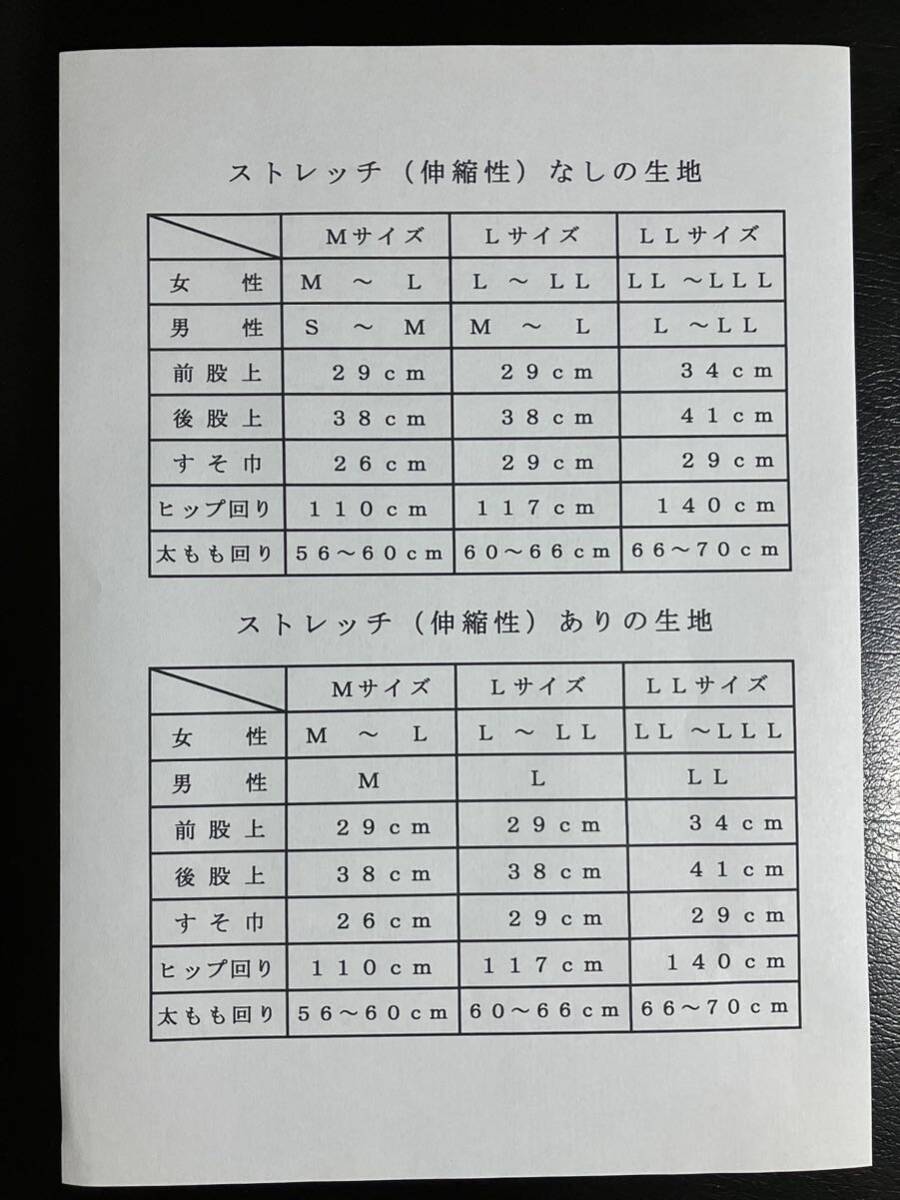 ストレッチ（伸縮性）なしの生地
Ｍサイズ Ｌサイズ ＬＬサイズ
女性 Ｍ～Ｌ Ｌ～ＬＬ ＬＬ～ＬＬＬ
男性 Ｓ～Ｍ Ｍ～Ｌ Ｌ～ＬＬ
前股上 ２９ｃｍ ２９ｃｍ ３４ｃｍ
後股上 ３８ｃｍ ３８ｃｍ ４１ｃｍ
すそ巾 ２６ｃｍ ２９ｃｍ ２９ｃｍ
ヒップ回り １１０ｃｍ １１７ｃｍ １４０ｃｍ
太もも回り ５６～６０ｃｍ ６０～６６ｃｍ ６６～７０ｃｍ
ストレッチ（伸縮性）ありの生地
Ｍサイズ Ｌサイズ ＬＬサイズ
女性 Ｍ～Ｌ Ｌ～ＬＬ ＬＬ～ＬＬＬ
男性 Ｍ Ｌ ＬＬ
前股上 ２９ｃｍ ２９ｃｍ ３４ｃｍ
後股上 ３８ｃｍ ３８ｃｍ ４１ｃｍ
すそ巾 ２６ｃｍ ２９ｃｍ ２９ｃｍ
ヒップ回り １１０ｃｍ １１７ｃｍ １４０ｃｍ
太もも回り ５６～６０ｃｍ ６０～６６ｃｍ ６６～７０ｃｍ